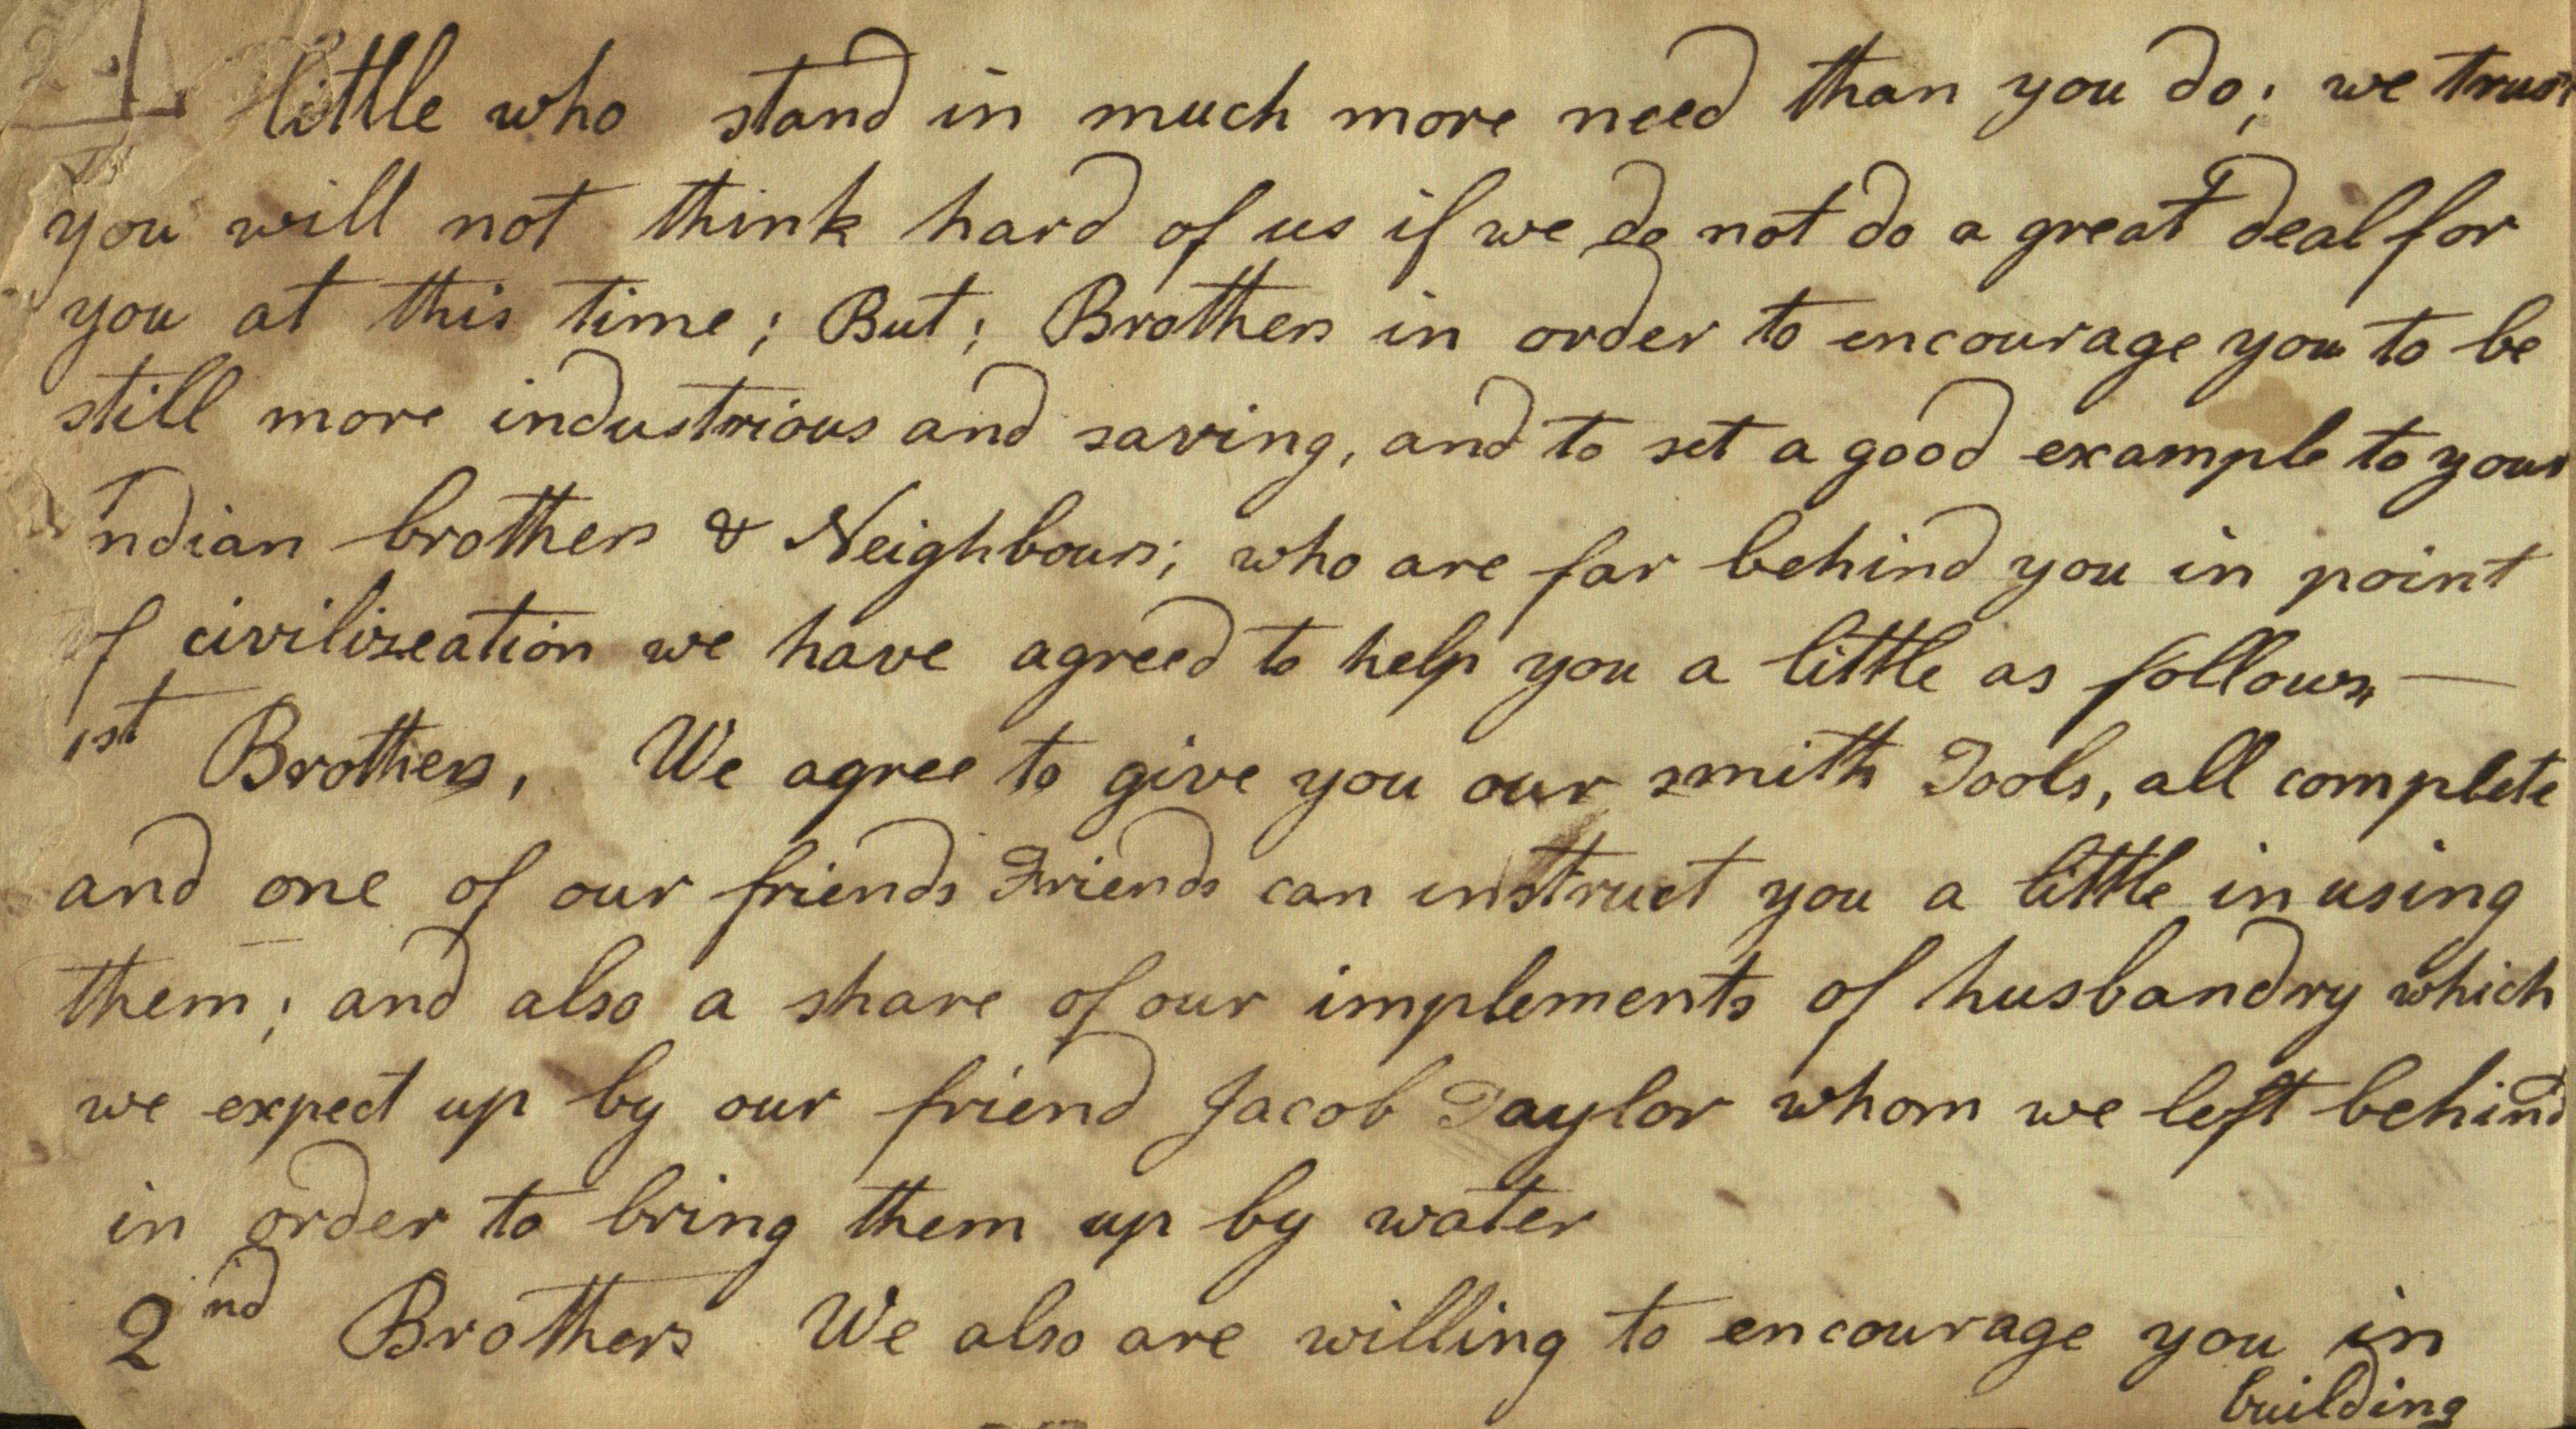 little who stand in much more need than you do; we trust
you will not think hard of us if we do not do a great deal for
you at this time; But; Brothers in order to encourage you to be
still more industrious and saving, and to set a good example to your
Indian brothers & Neighbours; who are far behind you in point
of civilizeation we have agreed to help you a little as follows —
1st Brothers, We agree to give you our smith Tools, all complete
and one of our friends Friends can instruct you a little in using
them; and also a share of our implements of husbandry which
we expect up by our friend Jacob Taylor whom we left behind
in order to bring them up by water
2nd Brothers We also are willing to encourage you in
building